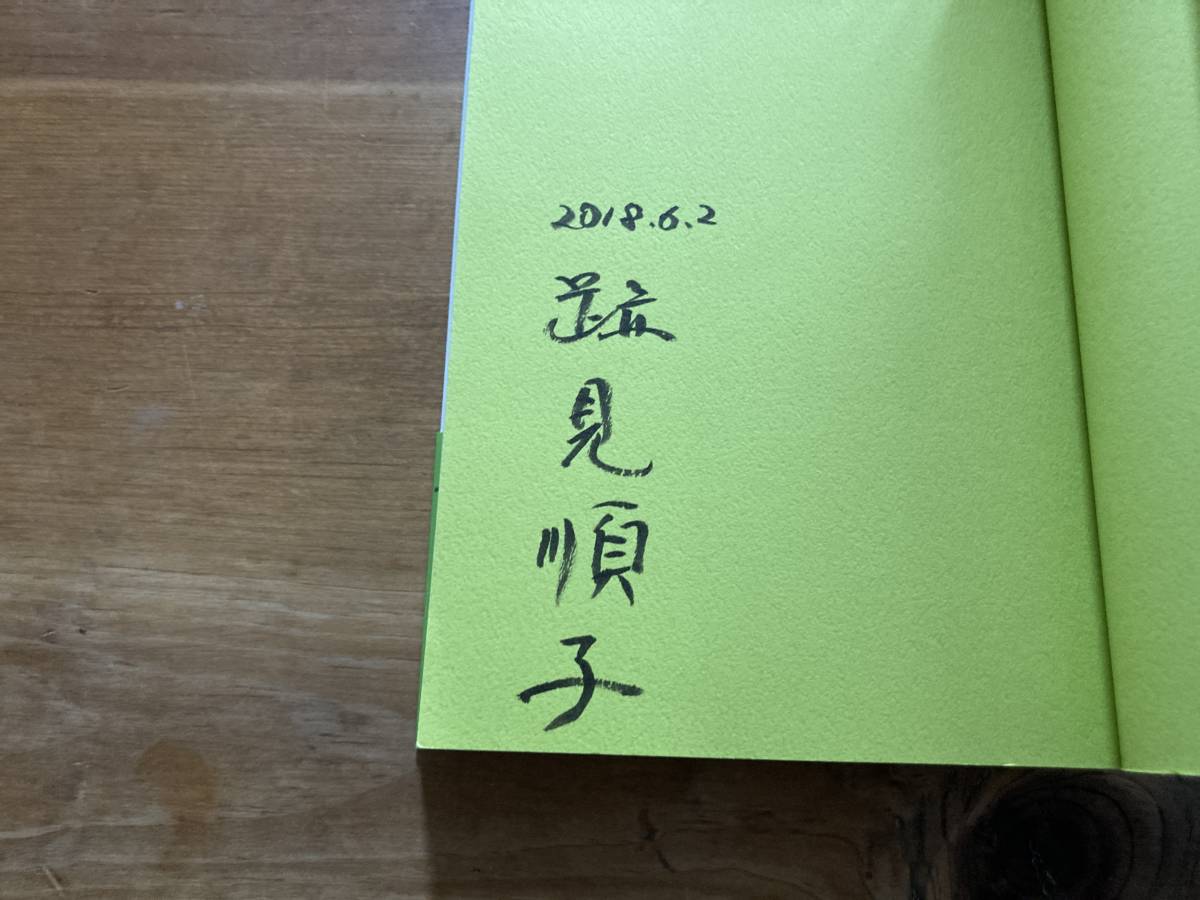 2018.6.2
跡見順子